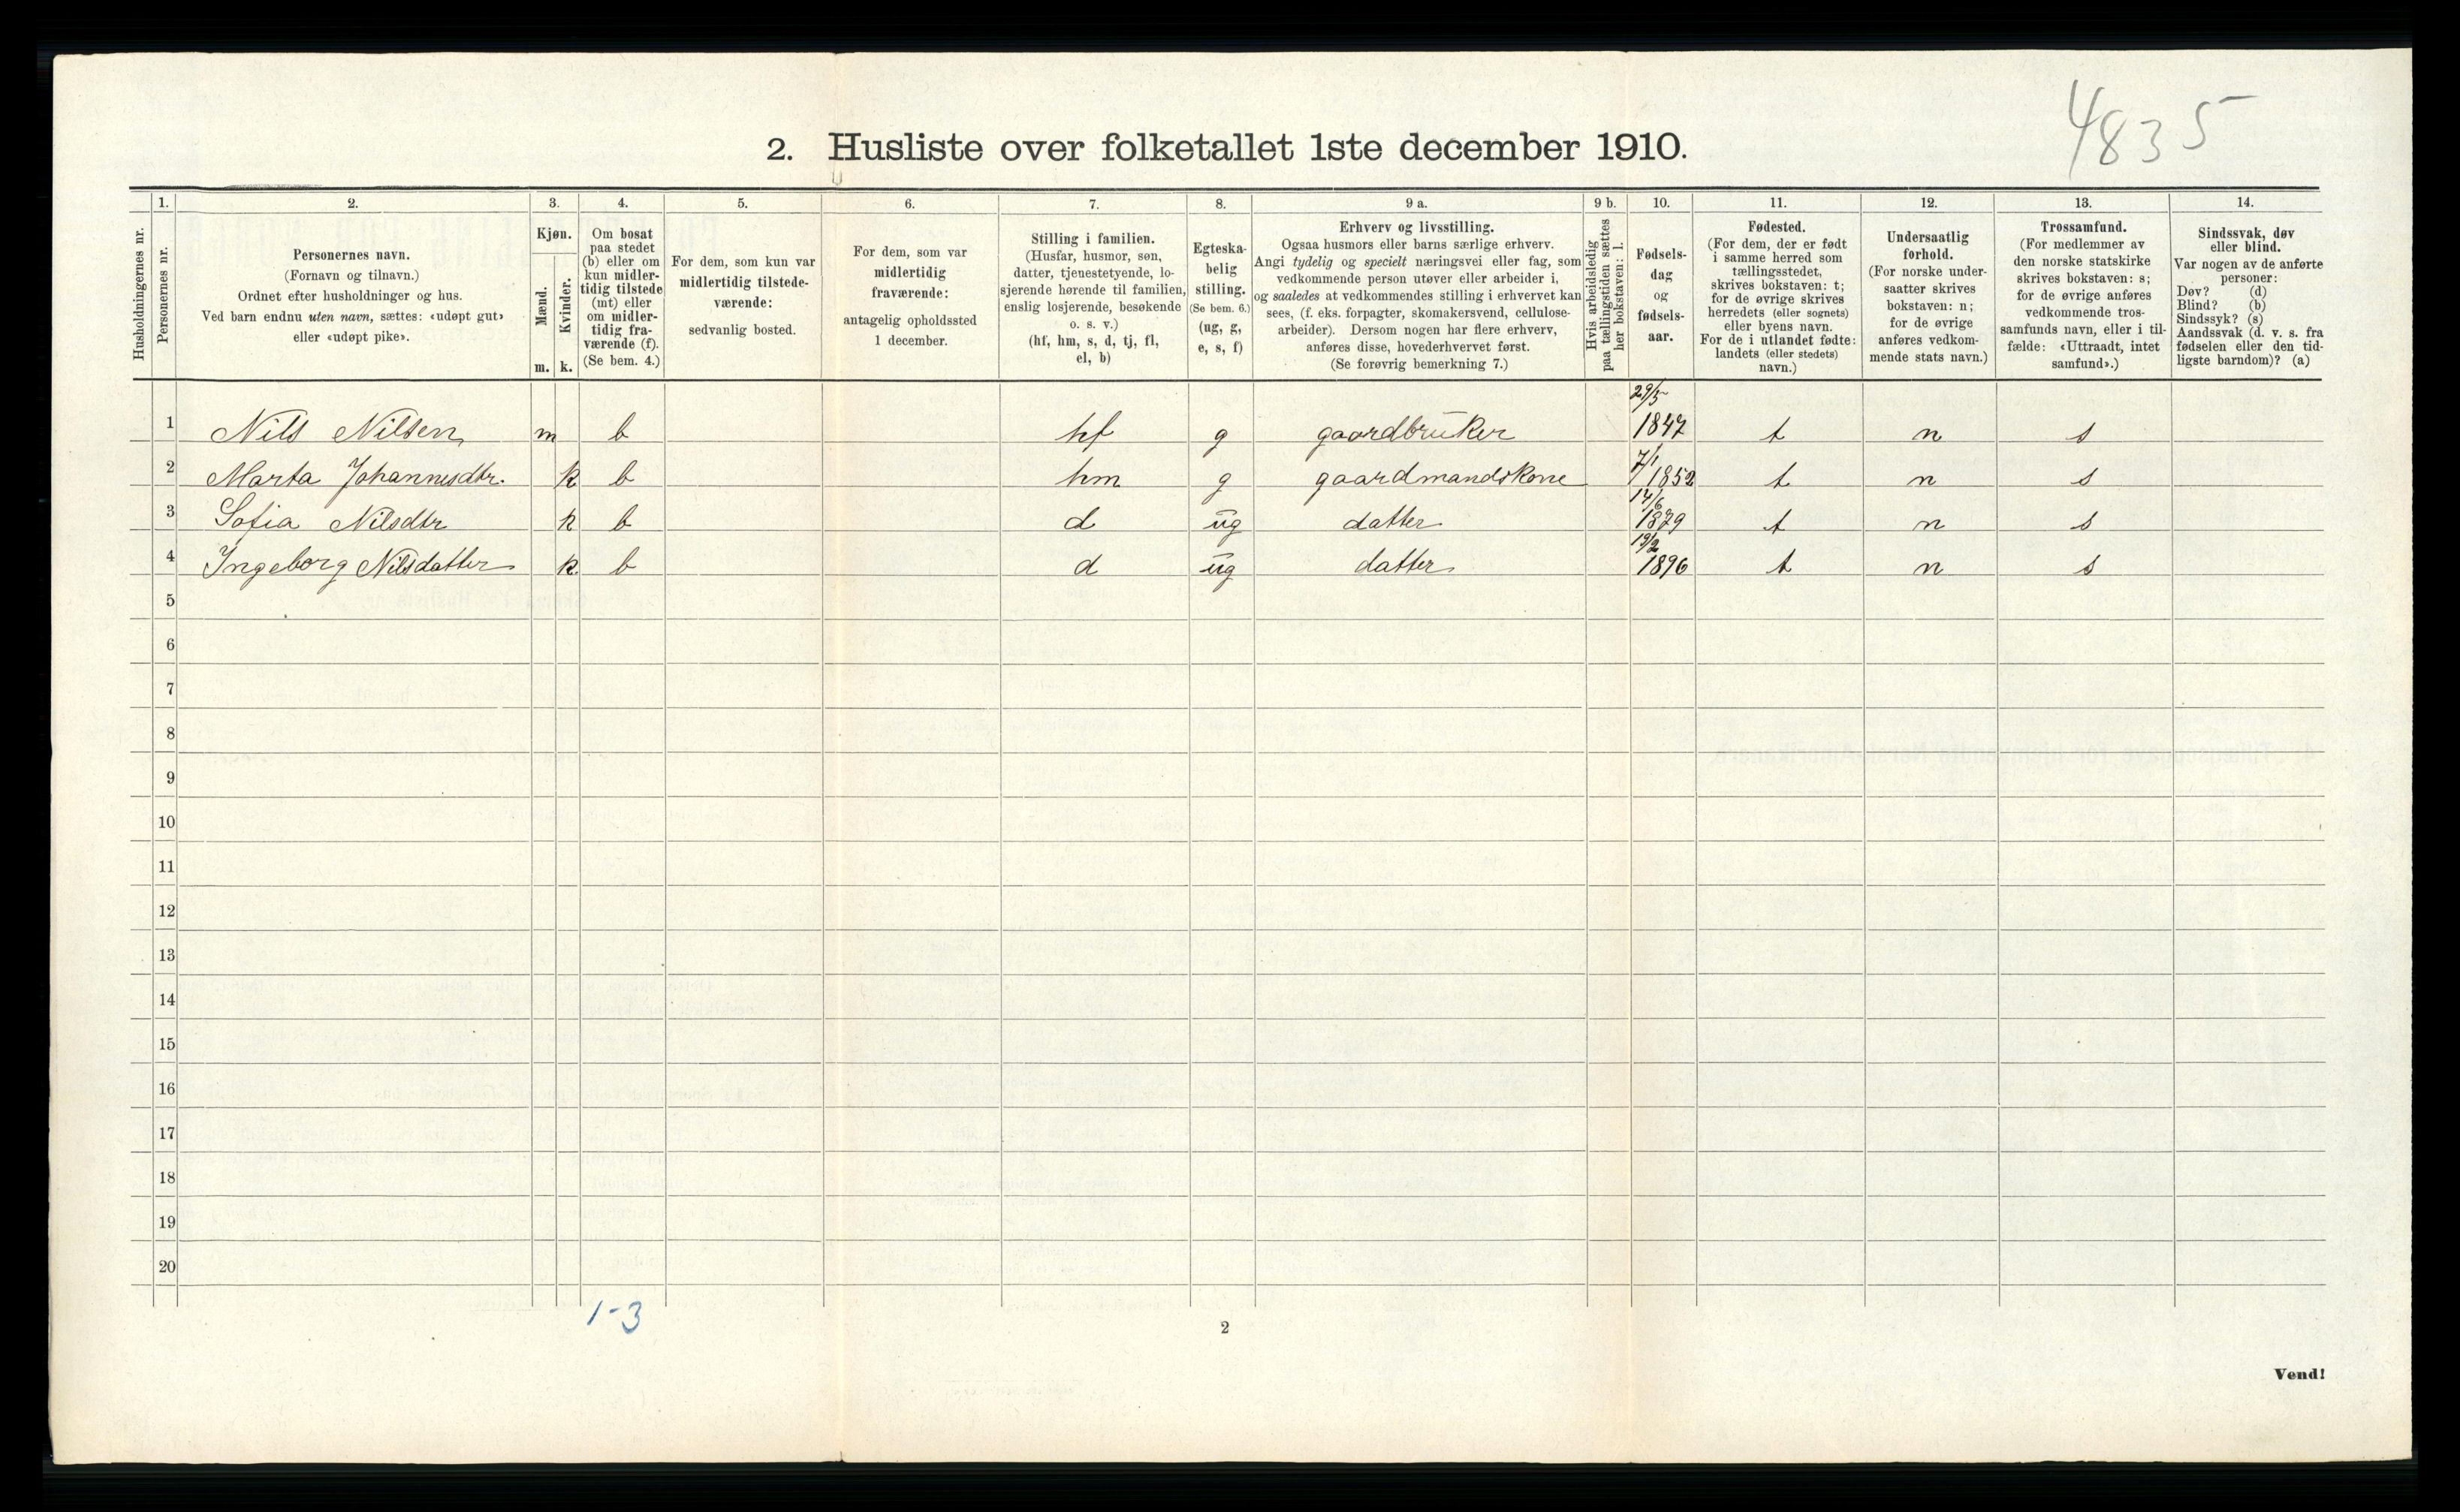 4835
2. Husliste over folketallet 1ste december 1910.
Husholdningernes nr.
1.
Personernes nr.
2.
Personernes navn.
(Fornavn og tilnavn.)
Ordnet efter husholdninger og hus.
Ved barn endnu uten navn, sættes: «udøpt gut»
eller «udøpt pike».
3.
Kjøn.
Mænd.
Kvinder.
m. k.
4.
Om bosat
paa stedet
(b) eller om
kun midler-
tidig tilstede
(mt) eller
om midler-
tidig fra-
værende (f).
(Se bem. 4.)
5.
For dem, som kun var
midlertidig tilstede-
værende:
sedvanlig bosted.
6.
For dem, som var
midlertidig
fraværende:
antagelig opholdssted
1 december.
7.
Stilling i familien.
(Husfar, husmor, søn,
datter, tjenestetyende, lo-
sjerende hørende til familien,
enslig losjerende, besøkende
o. s. v.)
(hf, hm, s, d, tj, fl,
el, b)
8.
Egteska-
belig
stilling.
(Se bem. 6.)
(ug, g,
e, s, f)
9 a.
Erhverv og livsstilling.
Ogsaa husmors eller barns særlige erhverv.
Angi tydelig og specielt næringsvei eller fag, som
vedkommende person utøver eller arbeider i,
og saaledes at vedkommendes stilling i erhvervet kan
sees, (f. eks. forpagter, skomakersvend, cellulose-
arbeider). Dersom nogen har flere erhverv,
anføres disse, hovederhvervet først.
(Se forøvrig bemerkning 7.)
9 b.
Hvis arbeidsledig
paa tællingstiden sættes
her bokstaven: l.
10.
Fødsels-
dag
og
fødsels-
aar.
11.
Fødested.
(For dem, der er født
i samme herred som
tællingsstedet,
skrives bokstaven: t;
for de øvrige skrives
herredets (eller sognets)
eller byens navn.
For de i utlandet fødte:
landets (eller stedets)
navn.)
12.
Undersaatlig
forhold.
(For norske under-
saatter skrives
bokstaven: n;
for de øvrige
anføres vedkom-
mende stats navn.)
13.
Trossamfund.
(For medlemmer av
den norske statskirke
skrives bokstaven: s;
for de øvrige anføres
vedkommende tros-
samfunds navn, eller i til-
fælde: «Uttraadt, intet
samfund».)
14.
Sindssvak, døv
eller blind.
Var nogen av de anførte
personer:
Døv? (d)
Blind? (b)
Sindssyk? (s)
Aandssvak (d. v. s. fra
fødselen eller den tid-
ligste barndom)? (a)
1 Nils Nilsen m b hf g gaardbruker 29/5 1847 t n s
2 Marta Johannesdtr. k b hm g gaardmandskone 7/1 1852 t n s
3 Sofia Nilsdtr k b d ug datter 14/6 1879 t n s
4 Ingeborg Nilsdatter k b d ug datter 19/2 1896 t n s
5
6
7
8
9
10
11
12
13
14
15
16
17
18
19
20
1-3
2
Vend!